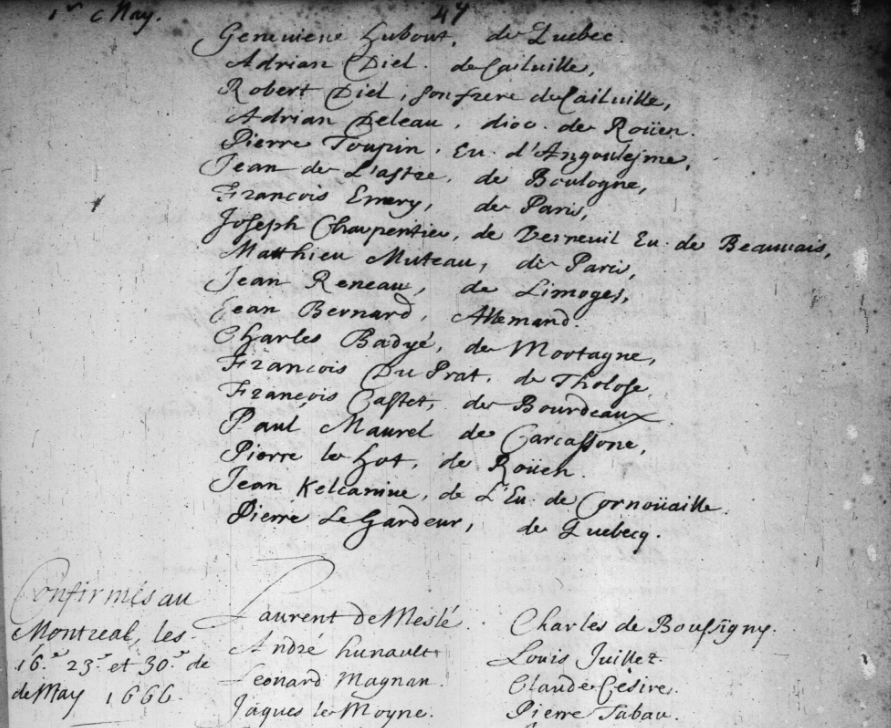 1er May.
47
Geneuiene hubout, de Quebec.
Adrian Diel. de Cailuille,
Robert Diel, son frere de Cailuille,
Adrian Deleau, dioc. de Roüen.
Pierre Toupin, Eu. d'Angoulesme,
Jean de L'astre, de Boulogne,
Francois Emery, de Paris,
Joseph Charpentier, de Verneuil Eu. de Beauuais,
Matthieu Muteau, de Paris,
Jean Reneau, de Limoges,
Jean Bernard, Allemand.
Charles Badyé, de Mortagne,
François Du Prat, de Tholose,
François Castet, de Bourdeaux
Paul Maurel de Carcassone,
Pierre le hot, de Roüen.
Jean de L'Eu. de Cornoüaille.
Pierre Le Gardeur, de Quebecq.
Confirmés au
Montreal, les
16.e 23.e et 30.e de
de May 1666.
Laurent de Meslé. Charles de Boussigny.
André hunault Louis Juillet.
Leonard Magnan. Claude Cesire.
Jaques le Moyne. Pierre Tabau.